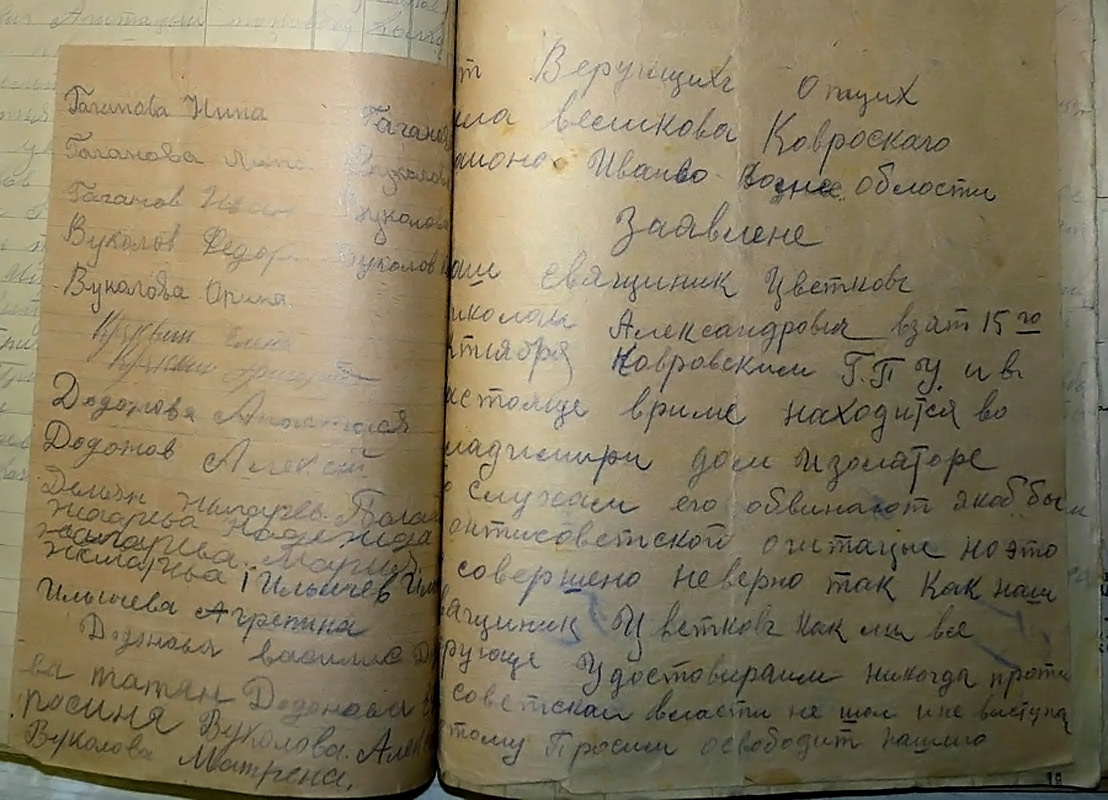 Гаганова Нина Гаганов
Гаганова Вуколова
Гаганов Иван Вуколова
Вуколов Федор Вуколов
Вуколова Орина
Елена
Додонова Анастасия
Додонов Алексей
Демян Жигарев. Пала
Жигарева Надежда
Мария
Ильичев
Ильичева Агрепина
Додонова василис
ва татян Додонова
росиня Вуколова. Алек
Вуколова Матрена.
т Верующихъ Опщих
ела весикова Ковроскаго
аиона Иванво Возне. облости
Заявлене
аш священик Цветковъ
иколаи Александрович взят 15 го
ктября Ковровским Г.П.У. и в
астояще време находится во
ладимири дом изоляторе
слухам его обвинают якобы
онтисоветской огитацые но это
совершено неверно так Как наш
ващиник Цветковъ как мы все
рующе Удостовираим никогда проти
советской власти не шол и не выступа
тому Просим освободит нашиго